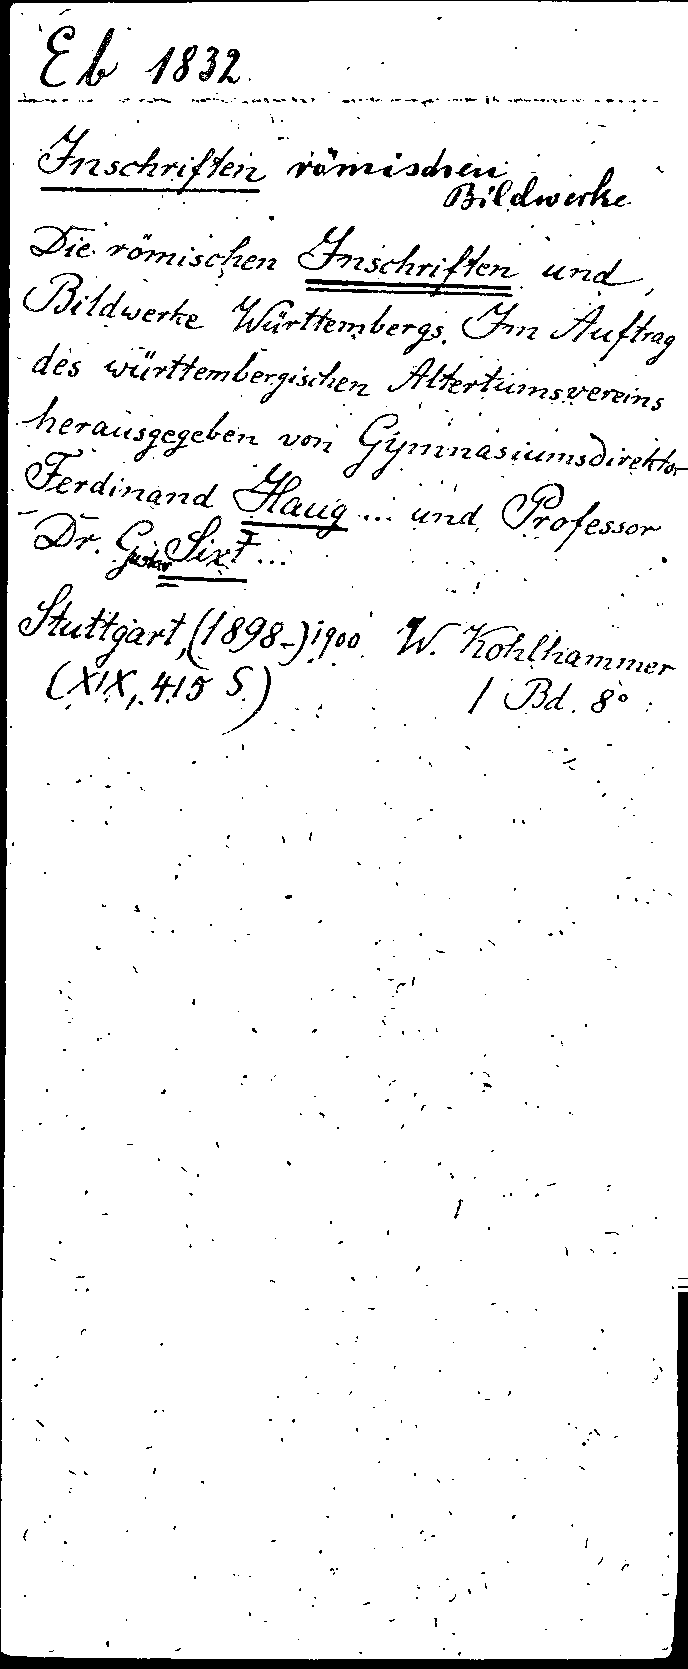 Eb 1832
Inschriften römischen
Bildwerke
Die römischen Inschriften und
Bildwerke Württembergs. Im Auftrag
des württembergischen Altertumsvereins
herausgegeben von Gymnasiumsdirektor
Ferdinand Haug ... und Professor
Dr. Gustav Sixt ...
Stuttgart, (1898-) 1900 W. Kohlhammer
(XIX, 415 S.) 1 Bd. 8°